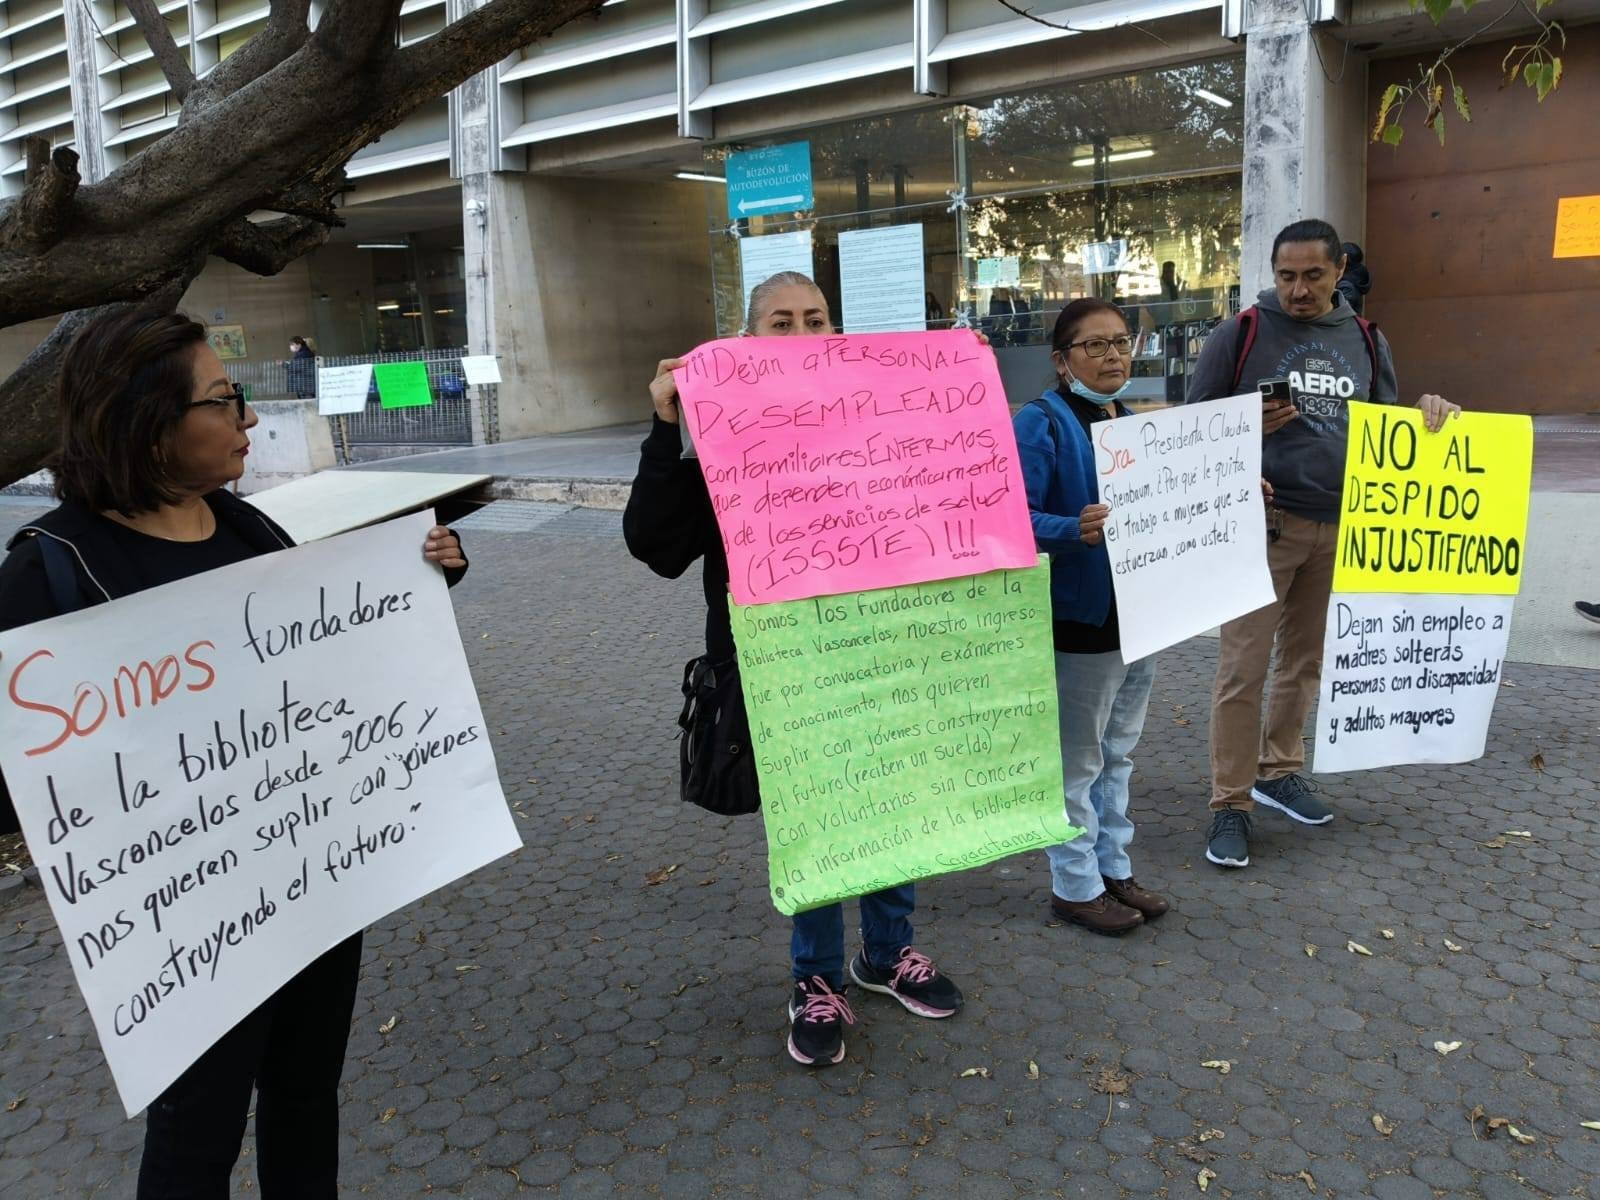 BUZÓN DE
AUTODEVOLUCIÓN
Somos fundadores
de la biblioteca
Vasconcelos desde 2006 y
nos quieren suplir con "jóvenes
construyendo el futuro."
¡¡¡Dejan a PERSONAL
DESEMPLEADO
con Familiares ENFERMOS
que dependen económicamente
y de los servicios de salud
(ISSSTE)!!!
Somos los fundadores de la
Biblioteca Vasconcelos, nuestro ingreso
fue por convocatoria y exámenes
de conocimiento, nos quieren
suplir con jóvenes Construyendo
el futuro (reciben un sueldo) y
con voluntarios sin conocer
la información de la biblioteca.
Nosotros los Capacitamos!
Sra. Presidenta Claudia
Sheinbaum, ¿Por qué le quita
el trabajo a mujeres que se
esfuerzan, como usted?
ORIGINAL
EST.
AERO
1987
NO AL
DESPIDO
INJUSTIFICADO
Dejan sin empleo a
madres solteras
personas con discapacidad
y adultos mayores